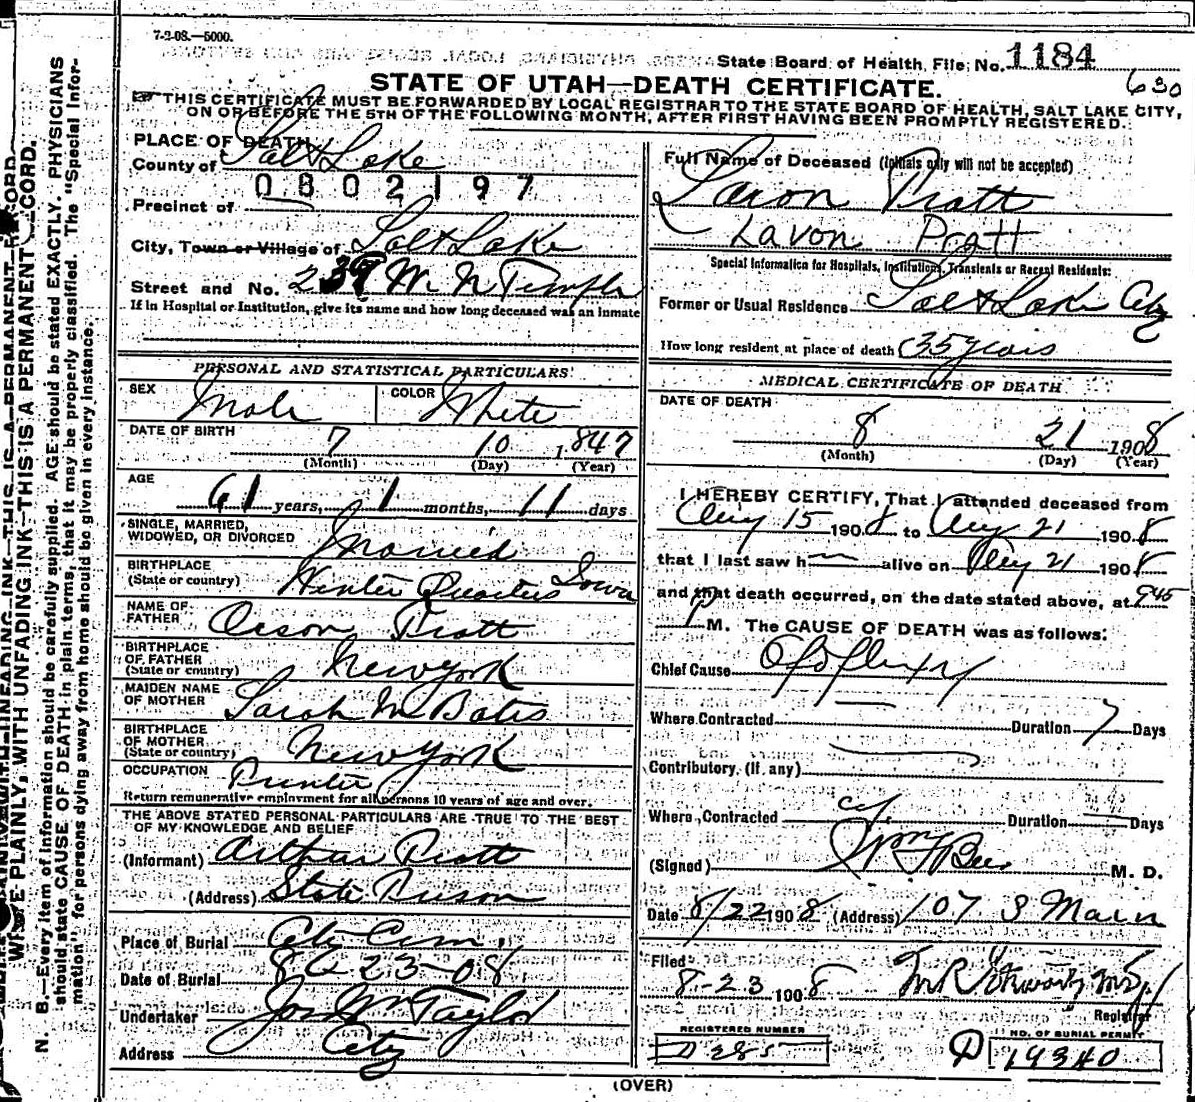 7-2-08.—5000.
State Board of Health, File No. 1184
630
STATE OF UTAH—DEATH CERTIFICATE.
THIS CERTIFICATE MUST BE FORWARDED BY LOCAL REGISTRAR TO THE STATE BOARD OF HEALTH, SALT LAKE CITY,
ON OR BEFORE THE 5TH OF THE FOLLOWING MONTH, AFTER FIRST HAVING BEEN PROMPTLY REGISTERED.
PLACE OF DEATH
County of Salt Lake
0802197
Precinct of
City, Town or Village of Salt Lake
Street and No. 239 W N Temple
If in Hospital or Institution, give its name and how long deceased was an inmate
PERSONAL AND STATISTICAL PARTICULARS
SEX Male COLOR White
DATE OF BIRTH 7 10 1847
(Month) (Day) (Year)
AGE 61 years, 1 months, 11 days
SINGLE, MARRIED,
WIDOWED, OR DIVORCED Married
BIRTHPLACE
(State or country) Winter Quarters Iowa
NAME OF
FATHER Orson Pratt
BIRTHPLACE
OF FATHER
(State or country) New York
MAIDEN NAME
OF MOTHER Sarah M Bates
BIRTHPLACE
OF MOTHER
(State or country) New York
OCCUPATION Printer
Return remunerative employment for all persons 10 years of age and over.
THE ABOVE STATED PERSONAL PARTICULARS ARE TRUE TO THE BEST
OF MY KNOWLEDGE AND BELIEF
(Informant) Arthur Pratt
(Address) State Prison
Place of Burial City Cem.
Date of Burial 8 23-08
Undertaker Jos Wm Taylor
Address City
Full Name of Deceased (Initials only will not be accepted)
Laron Pratt
Lavon Pratt
Special Information for Hospitals, Institutions, Transients or Recent Residents:
Former or Usual Residence Salt Lake City
How long resident at place of death 35 years
MEDICAL CERTIFICATE OF DEATH
DATE OF DEATH
8 21 1908
(Month) (Day) (Year)
I HEREBY CERTIFY, That I attended deceased from
Aug 15 1908 to Aug 21 1908
that I last saw h alive on Aug 21 1908
and that death occurred, on the date stated above, at 945
P M. The CAUSE OF DEATH was as follows:
Chief Cause Apoplexy
Where Contracted Duration 7 Days
Contributory (If any)
Where Contracted Duration Days
(Signed) M. D.
Date 8/22 1908 (Address) 107 S Main
Filed
8-23 1908
Registrar
REGISTERED NUMBER
D 285
NO. OF BURIAL PERMIT
D 19340
(OVER)
WRITE PLAINLY, WITH UNFADING INK—THIS IS A PERMANENT RECORD.
N. B.—Every item of information should be carefully supplied. AGE should be stated EXACTLY. PHYSICIANS
should state CAUSE OF DEATH in plain terms, that it may be properly classified. The "Special Infor-
mation" for persons dying away from home should be given in every instance.